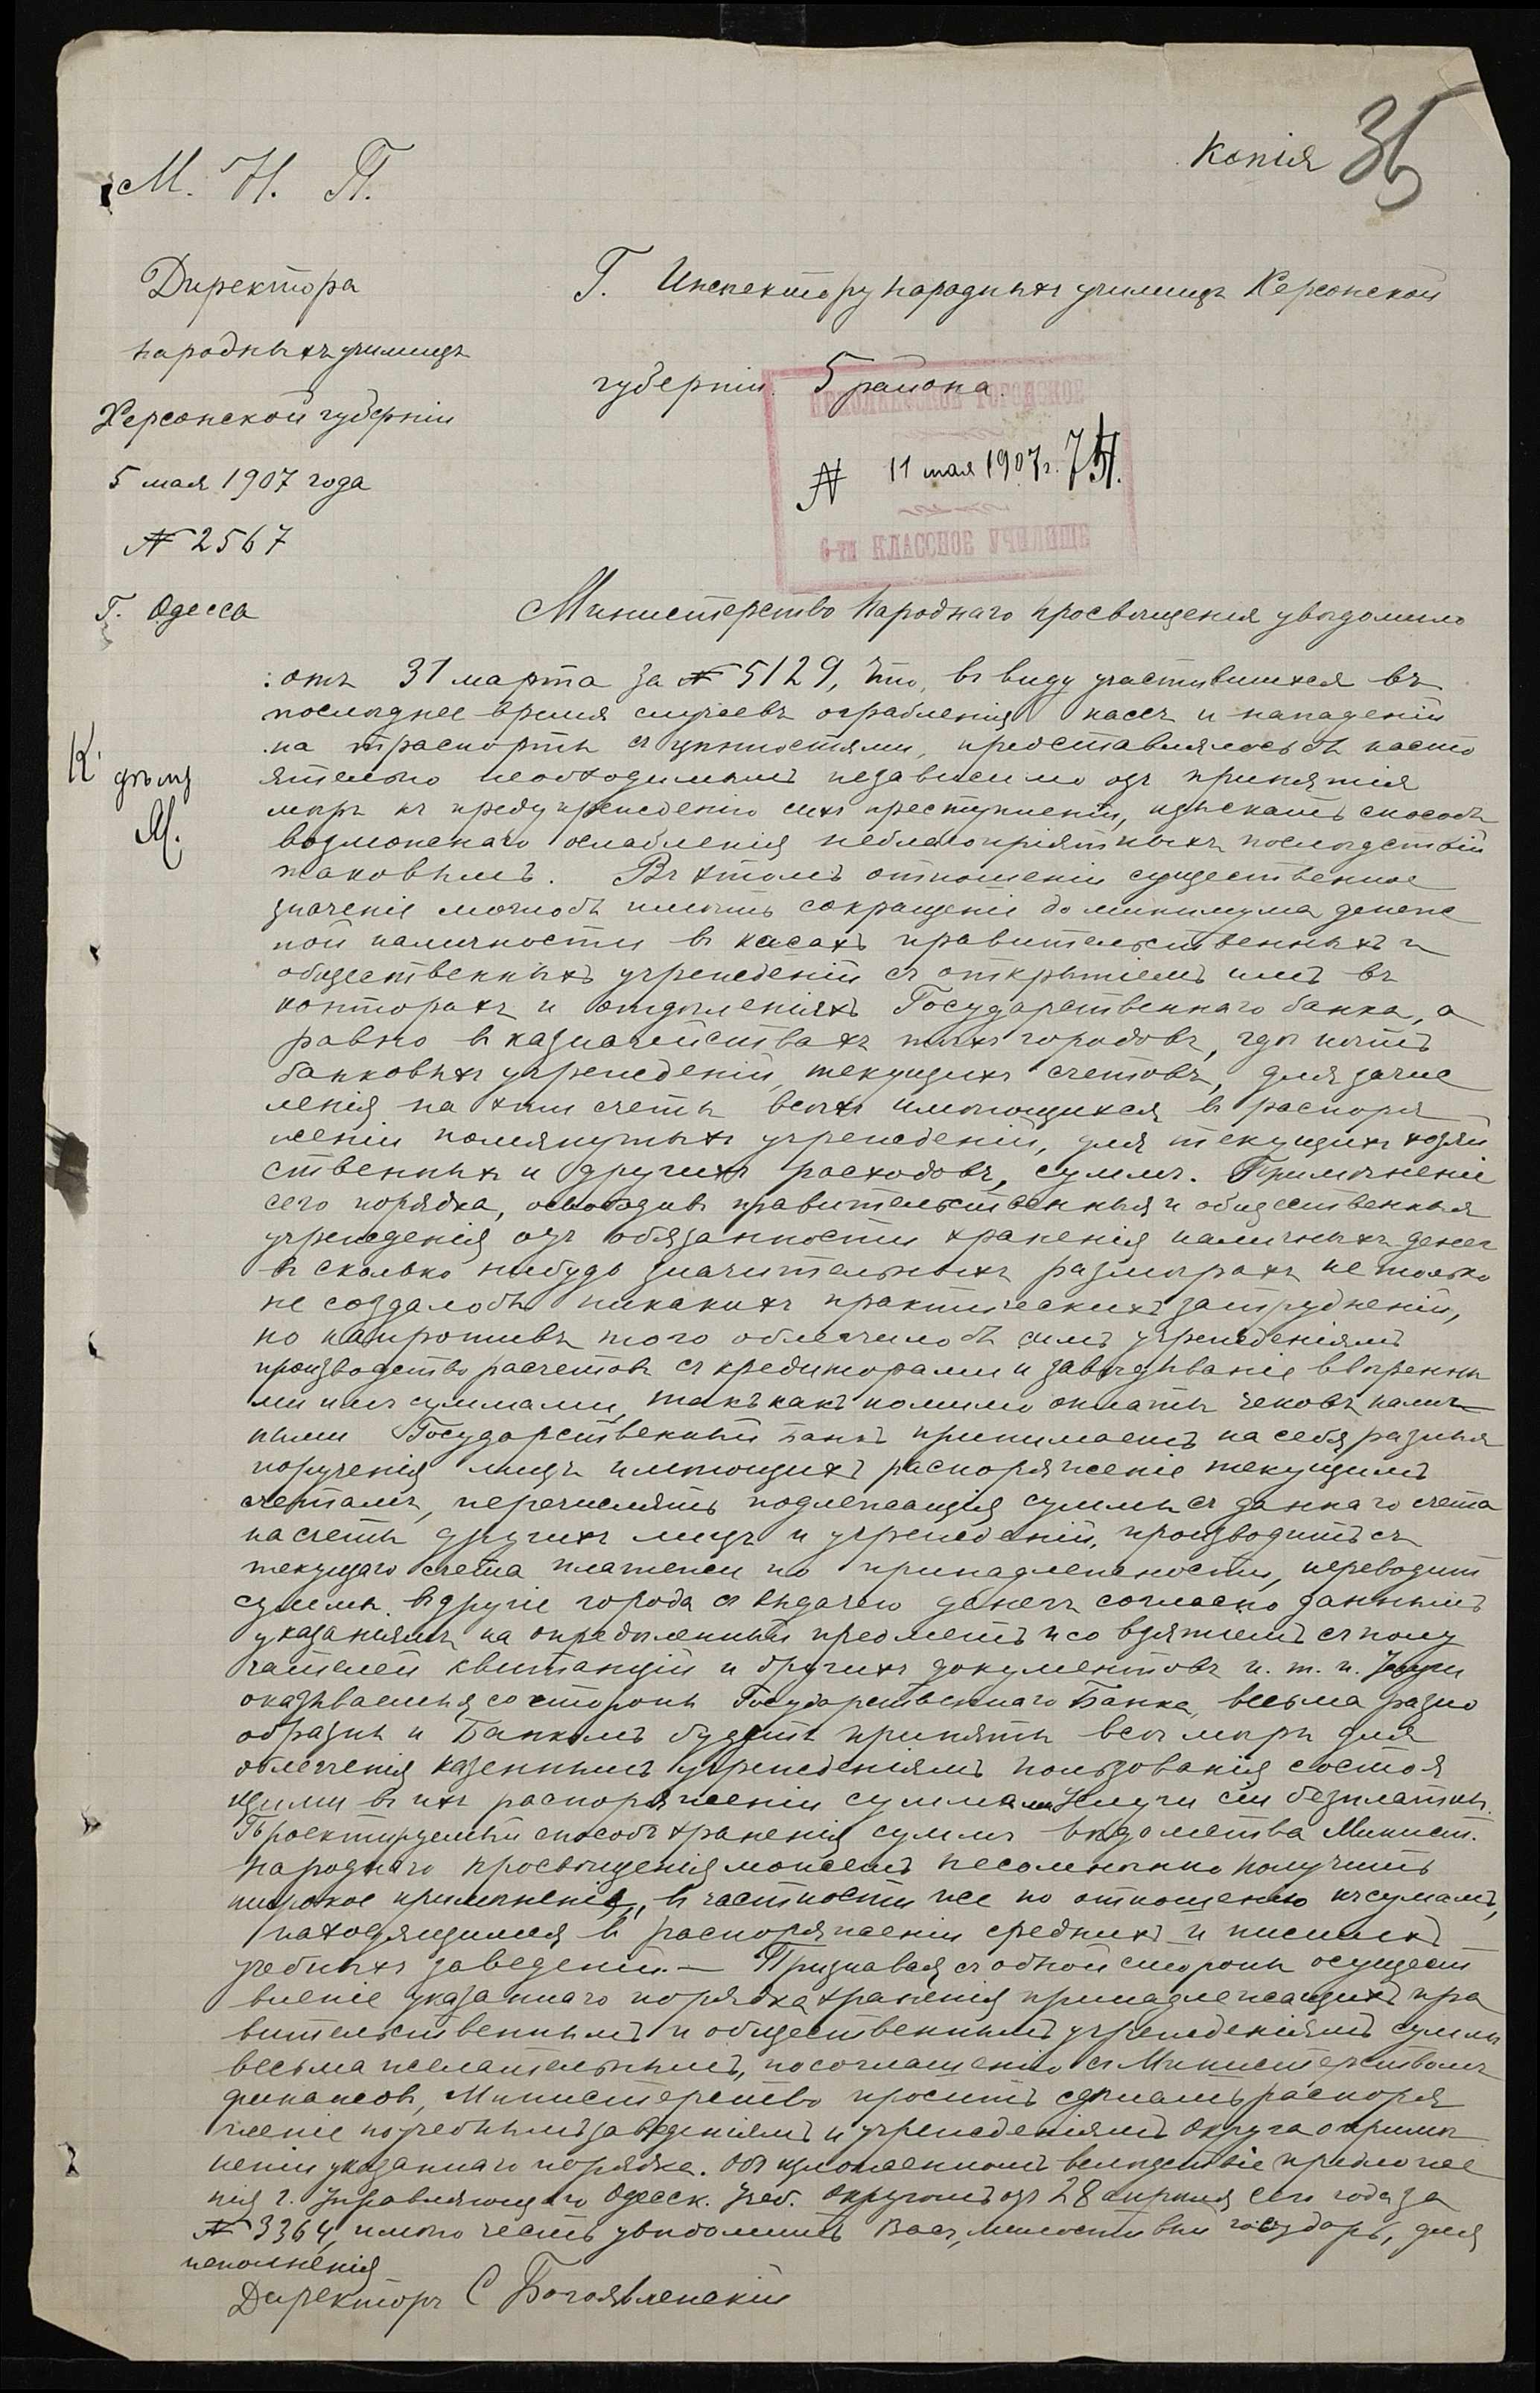 Копія 35
М. Н. П.
Директора
народныхъ училищъ
Херсонской губерніи
5 мая 1907 года
№ 2567
Г. Одесса
Г. Инспектору народныхъ училищъ Херсонской
губерніи 5 района.
НИКОЛАЕВСКОЕ ГОРОДСКОЕ
№ 11 мая 1907 г.
6-ти КЛАССНОЕ УЧИЛИЩЕ
К дѣлу
Министерство Народнаго просвѣщенія увѣдомило
отъ 31 марта за № 5129, что, въ виду участившихся въ
послѣднее время случаевъ ограбленія кассъ и нападеній
на траспорты съ цѣнностями, представлялось бы насто
ятельно необходимымъ независимо отъ принятія
мѣръ къ предупрежденію сихъ преступленій, изыскать способъ
возможнаго ослабленія неблагопріятныхъ послѣдствій
таковымъ. Въ этомъ отношеніи существенное
значеніе могло бы имѣть сокращеніе до минимума денеж
ной наличности въ касахъ правительственныхъ и
общественныхъ учрежденій съ открытіемъ имъ въ
конторахъ и отдѣленіяхъ Государственнаго банка, а
равно въ казначействахъ тѣхъ городовъ, гдѣ нѣтъ
банковыхъ учрежденій, текущихъ счетовъ, для зачис
ленія на эти счеты всѣхъ имѣющихся въ распоря
женіи помянутыхъ учрежденій, для текущихъ хозяй
ственныхъ и другихъ расходовъ, суммъ. Примѣненіе
сего порядка, освободивъ правительственныя и общественныя
учрежденія отъ обязанности храненія наличныхъ денегъ
въ сколько нибудь значительныхъ размѣрахъ не только
не создало бы никакихъ практическихъ затрудненій,
но напротивъ того облегчило бы симъ учрежденіямъ
производство расчетовъ съ кредиторами и завѣдываніе ввѣренны
ми имъ суммами, такъ какъ помимо оплаты чековъ налич
ными Государственный банкъ принимаетъ на себя разныя
порученія лицъ имѣющихъ распоряженіе текущимъ
счетамъ, перечислять подлежащія суммы съ даннаго счета
на счеты другихъ лицъ и учрежденій, производить съ
текущаго счета платежи по принадлежности, переводить
суммы въ другіе города съ выдачею денегъ согласно даннымъ
указаніямъ на опредѣленный предметъ и со взятіемъ съ полу
чателей квитанцій и другихъ документовъ и. т. п. Услуги
оказываемыя со стороны Государственнаго Банка, весьма разно
образны и Банкомъ будутъ приняты всѣ мѣры для
облегченія казеннымъ учрежденіямъ пользованія состоя
щими въ ихъ распоряженіи суммами. Услуги сіи безплатны.
Проектируемый способъ храненія суммъ вѣдомства Минист.
Народнаго Просвѣщенія можетъ несомнѣнно получить
широкое примѣненіе, въ частности же по отношенію къ сумамъ,
находящимся въ распоряженіи среднихъ и нисшихъ
учебныхъ заведеній. — Признавая съ одной стороны осущест
вленіе указаннаго порядка храненія принадлежащихъ пра
вительственнымъ и общественнымъ учрежденіямъ суммъ
весьма желательнымъ, по соглашенію съ Министерствомъ
финансовъ, Министерство проситъ сдѣлать распоря
женіе по учебнымъ заведеніямъ и учрежденіямъ Округа о примѣ
неніи указаннаго порядка. Объ изложенномъ вслѣдствіе предложе
нія г. Управляющаго Одесск. Учеб. Округомъ отъ 28 апрѣля сего года за
№ 3364, имѣю честь увѣдомить Васъ, милостивый государь, для
исполненія
Директоръ С Богоявленскій